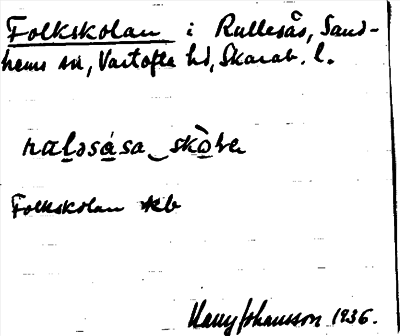 Folkskolan i Rullesås, Sand-
hems sn, Vartofta hd, Skarab. l.
ralәsása skòla
Folkskolan
Harry Johansson 1936.